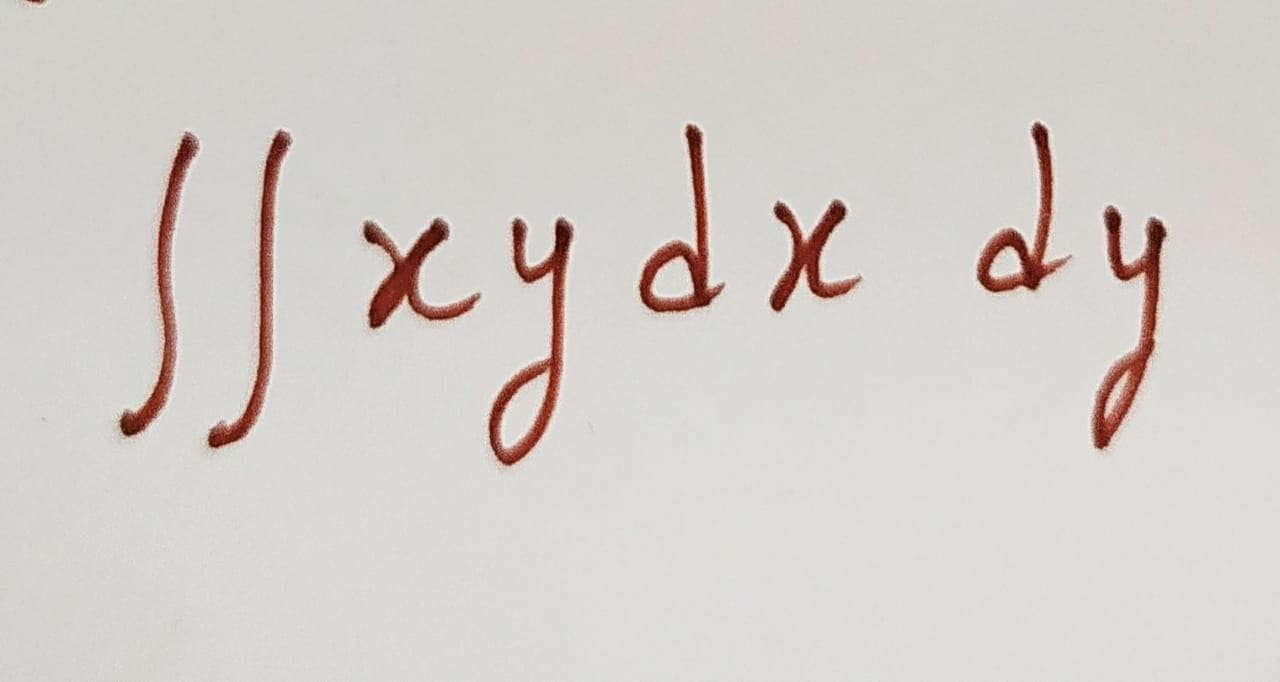 ∬ xy dx dy